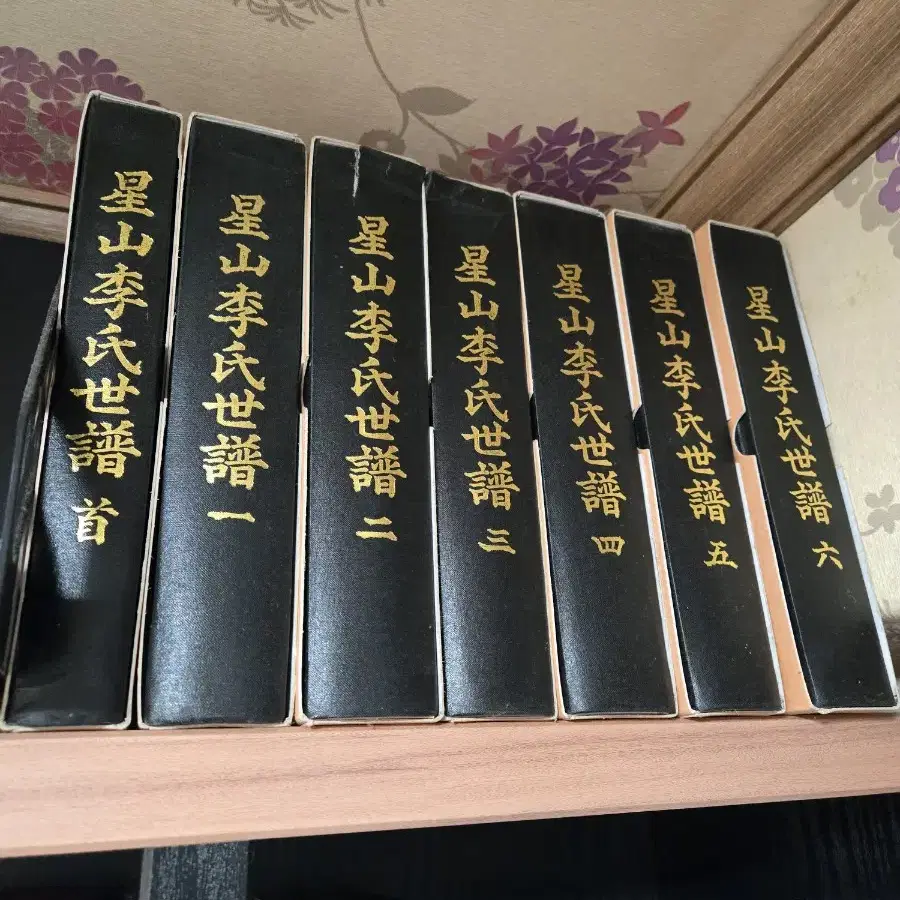 星山李氏世譜 首
星山李氏世譜 一
星山李氏世譜 二
星山李氏世譜 三
星山李氏世譜 四
星山李氏世譜 五
星山李氏世譜 六